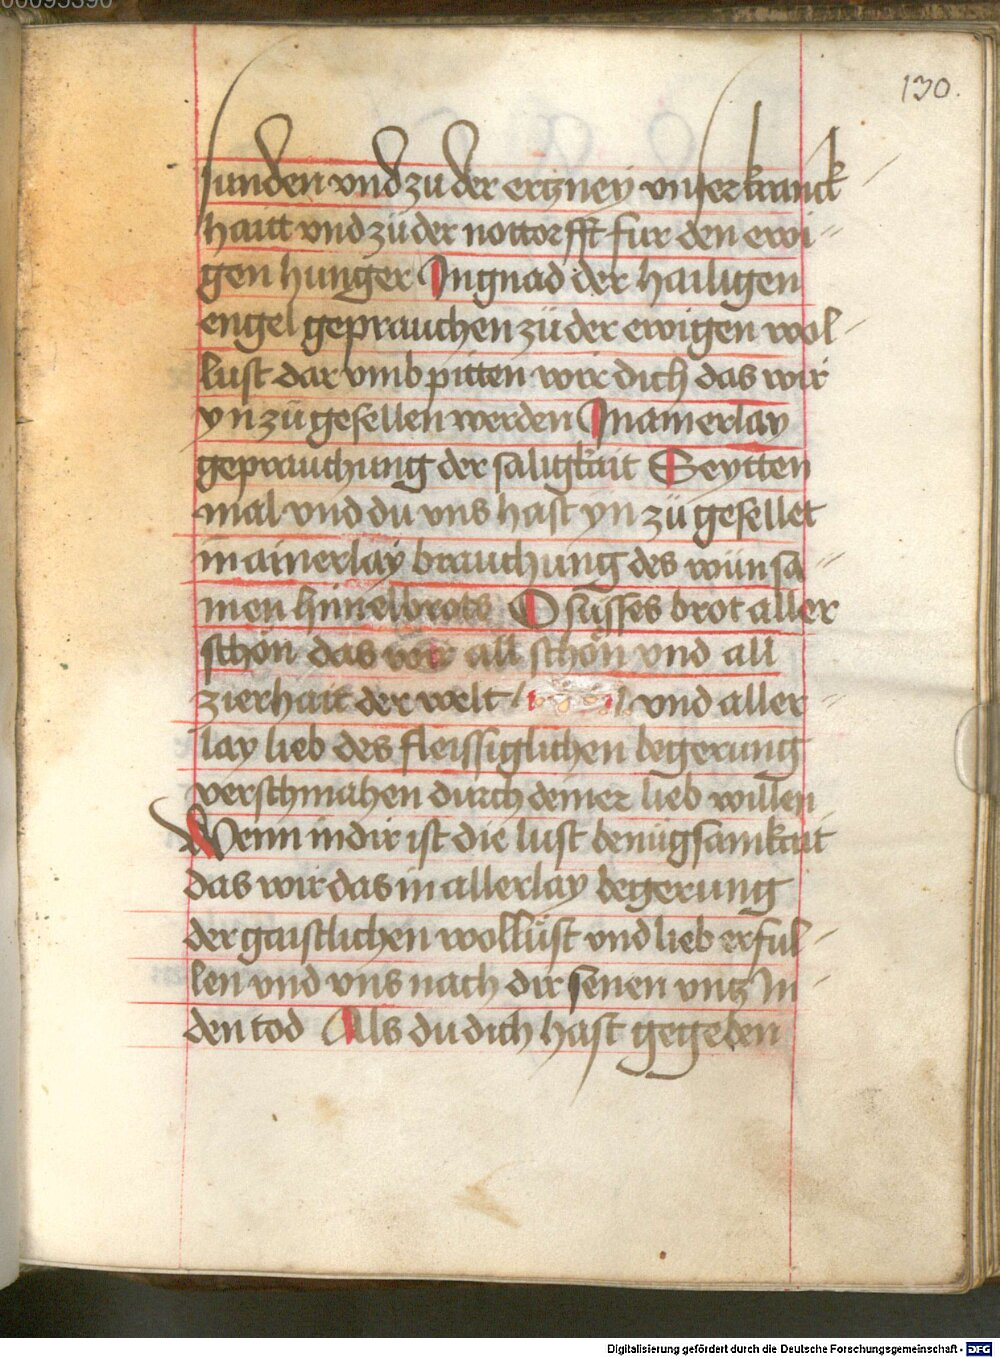 00095390
130.
sunden vnd zu der ertzney vnser kranck
hait vnd zü der nottorfft fur den ewi
gen hunger In gnad der hailigen
engel geprauchen zü der ewigen wol
lust dar vmb pitten wir dich das wir
yn zü gesellen werden In ainerlay
geprauchung der saligkait Seytten
mal vnd du vns hast yn zü gesellet
in ainerlay brauchung des wünsa
men himelbrots O süsses brot aller
schön das wir all schön vnd all
zierhait der welt vnd aller
lay lieb des fleissiglichen begerung
verschmahen durch deiner lieb willen
Wenn in dir ist die lust benügsamkait
das wir das in allerlay begerung
der gaistlichen wollüst vnd lieb erful
len vnd vns nach dir senen vntz In
den tod Als du dich hast gegeben
Digitalisierung gefördert durch die Deutsche Forschungsgemeinschaft - DFG